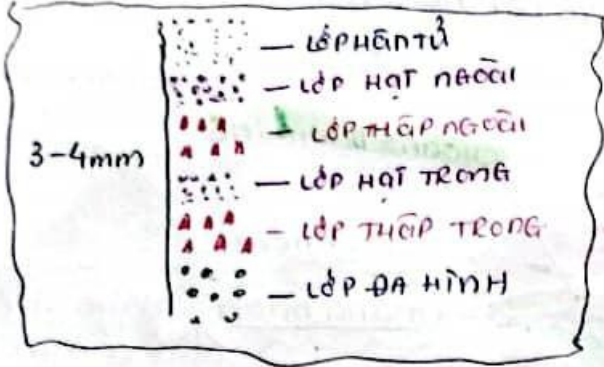 LỚP PHÂN TỬ
LỚP HẠT NGOÀI
LỚP THÁP NGOÀI
3-4mm
LỚP HẠT TRONG
LỚP THÁP TRONG
LỚP ĐA HÌNH